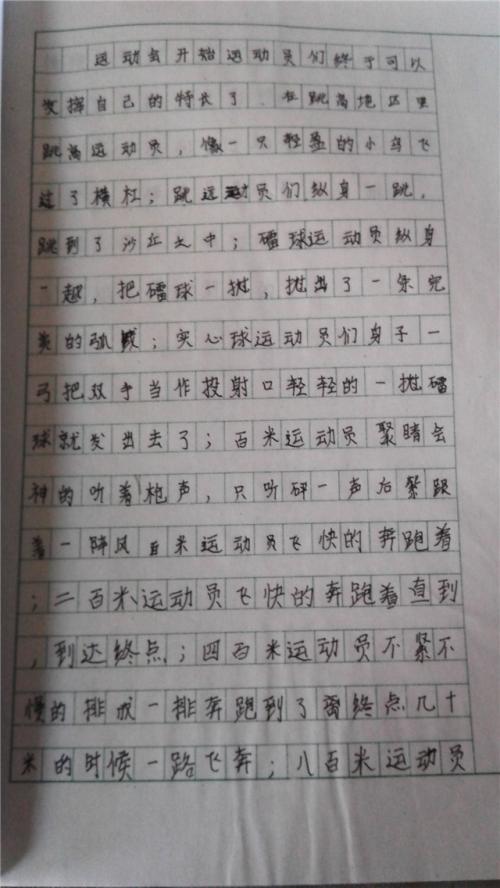 运动会开始运动员们终于可以
发挥自己的特长了.在跳高地区里
跳高运动员,像一只轻盈的小鸟飞
过了横杠;跳远运动员们纵身一跳,
跳到了沙丘之中;礌球运动员纵身
一越,把礌球一抛,抛出了一条完
美的弧线;实心球运动员们身子一
弓把双手当作投射口轻轻的一抛礌
球就发出去了;百米运动员聚睛会
神的听着枪声,只听砰一声后紧跟
着一阵风百米运动员飞快的奔跑着
;二百米运动员飞快的奔跑着直到
,到达终点;四百米运动员不紧不
慢的排成一排奔跑到了离终点几十
米的时候一路飞奔;八百米运动员